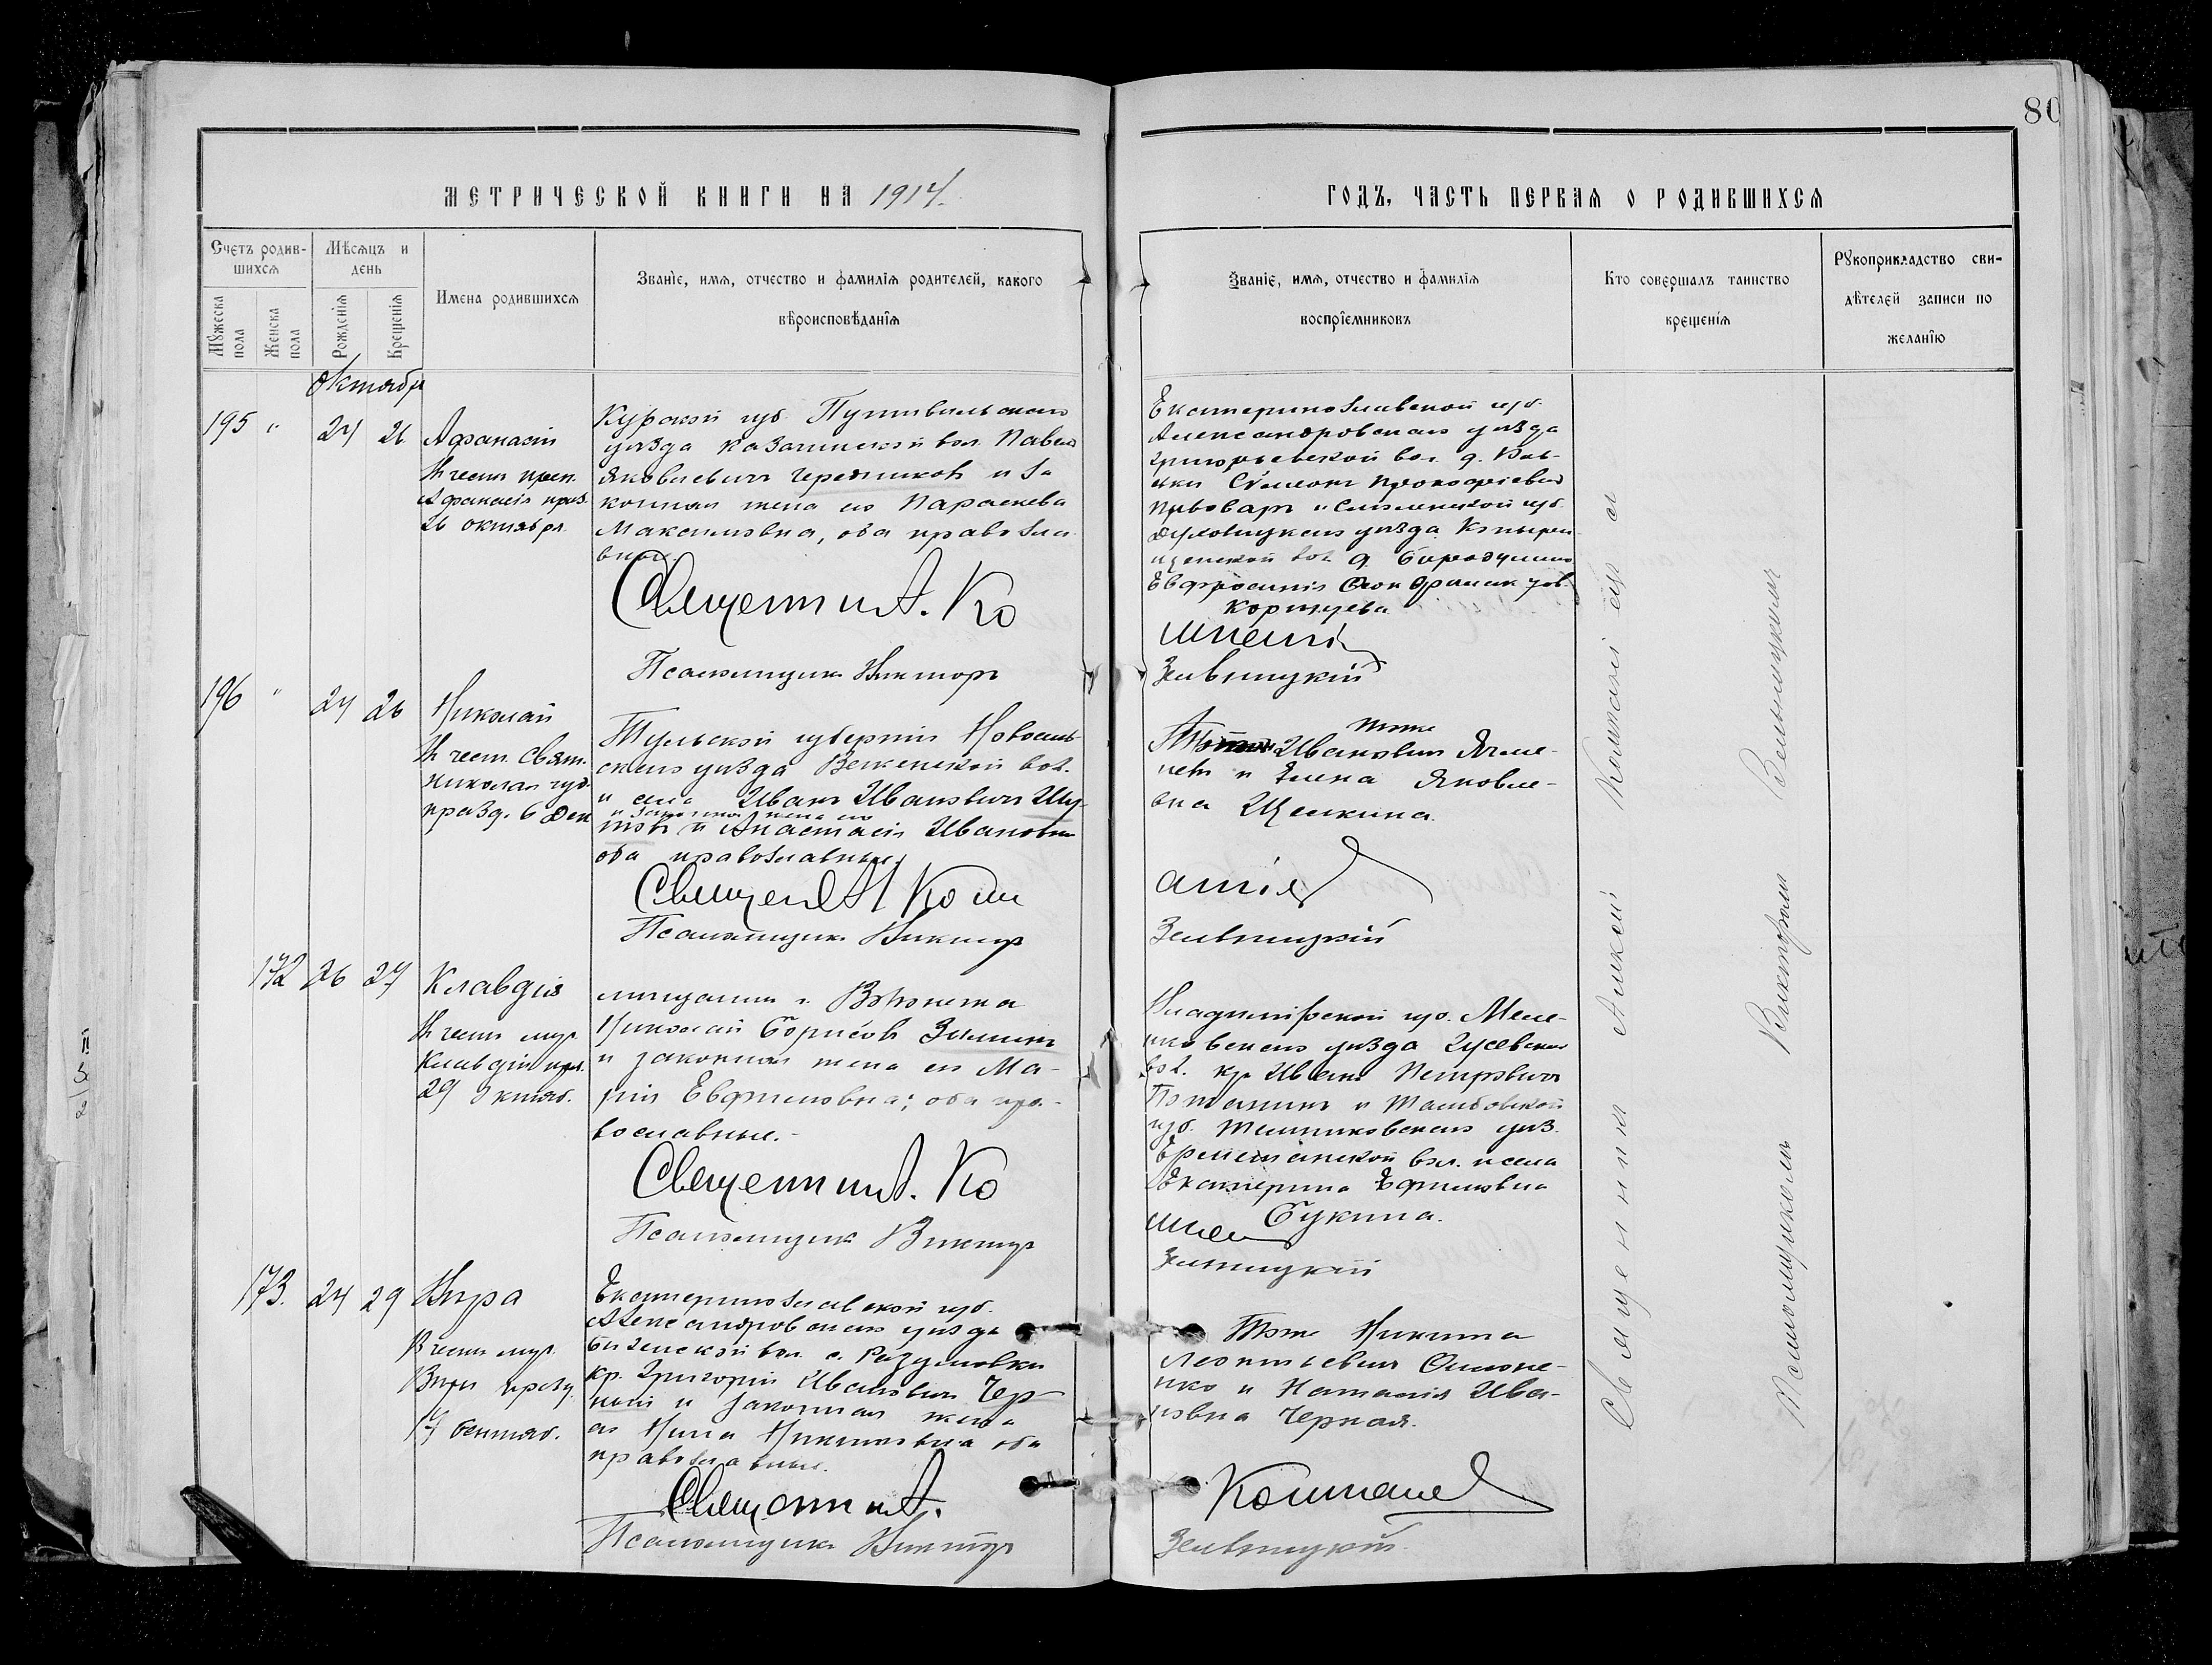 80
МЕТРИЧЕСКОЙ КНИГИ НА 1914
ГОДЪ, ЧАСТЬ ПЕРВАЯ О РОДИВШИХСЯ
Счетъ родив-
шихся
Мѣсяцъ и
день
Мужеска
пола
Женска
пола
Рожденія
Крещенія
Имена родившихся
Званіе, имя, отчество и фамилія родителей, какого
вѣроисповѣданія
Званіе, имя, отчество и фамилія
воспріемниковъ
Кто совершалъ таинство
крещенія
Рукоприкладство сви-
дѣтелей записи по
желанію
октябр
195 " 24 26 Афанасій
въ честь преп.
Афанасія празд.
26 октября
Курской губ. Путивльскаго
уѣзда Казачинской вол. Павел
Яковлевичъ Чередниковъ и за
конная жена его Параскева
Максимовна, оба православ
ные.
Священник А. Ко
Псаломщикъ Викторъ
Екатеринославской губ.
Александровскаго уѣзда
Григорьевской вол. д.
Симеонъ Прокофіевъ
Пивоваръ и Смоленской губ.
уѣзда
вол. д.
Евфросинія

Зельницкій
196 " 24 26 Николай
въ чест. Свят.
Николая чуд.
празд. 6 Дек
Тульской губерніи Новосиль
скаго уѣзда вол.
и села Иванъ Ивановичъ Шу-
и законная жена его
товъ и Анастасія Ивановна
оба православные.
Священ А Кош
Псаломщикъ Викторъ
тоже
Ивановичъ Ячме-
невъ и Елена Яковле-
вна Щеткина.
Зельницкій
172 26 27 Клавдія
въ честь муч.
Клавдіи пр.
29 октяб.
мѣщанинъ г. Воронежа
Николай Борисовъ Зиминъ
и законная жена его Ма-
рія Евфимовна; оба пра-
вославные.-
Священник А. Ко
Псаломщикъ Викторъ
Владимірской губ. Меле-
нковскаго уѣзда Гусевской
вол. кр. Иванъ Петровичъ
Потанинъ и Тамбовской
губ. Темниковскаго уѣз.
вол. и села
Екатерина Ефимовна
Букина.
Зельницкій
173. 24 29 Вѣра
въ честь муч.
Вѣры празд.
17 Сентяб.
Екатеринославской губ.
Александровскаго уѣзда
вол. с. Разумовки
кр. Григорій Ивановичъ Чер-
ный и законная жена
его Нина Никитовна оба
православные.
Священник А.
Псаломщикъ Викторъ
Тоже Никита
Леонтьевичъ Симоне-
нко и Наталія Ива-
новна Черная.
Коштане
Зельницкій
Священник Алексій
Псаломщикомъ Викторомъ Зельницкимъ